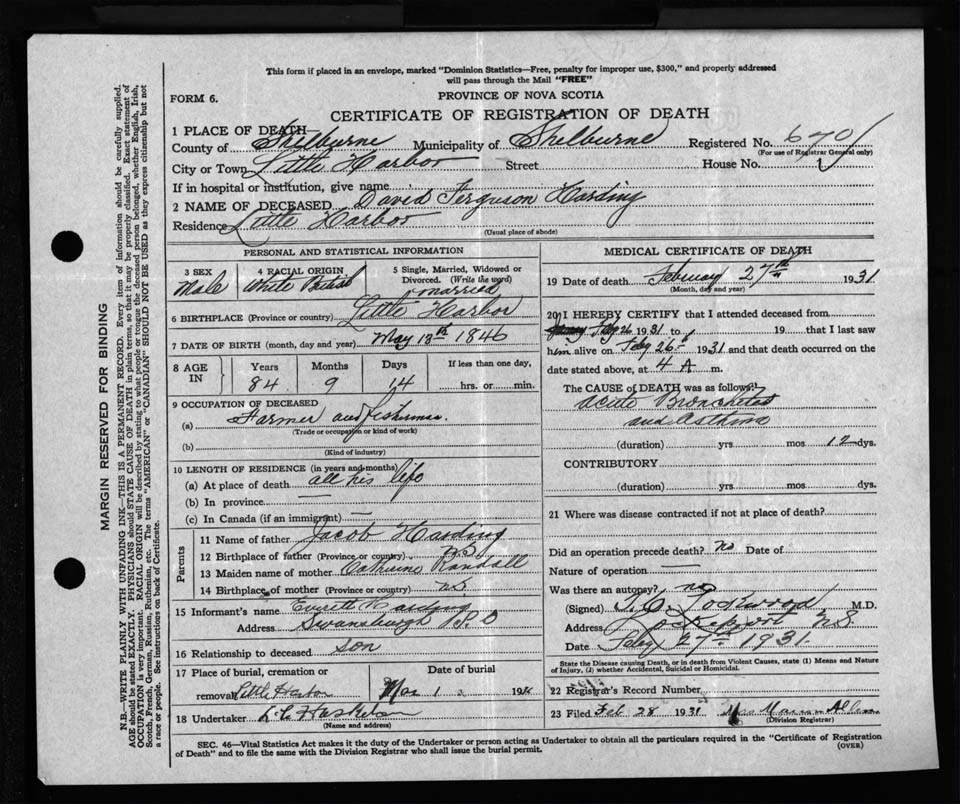 This form if placed in an envelope, marked "Dominion Statistics—Free, penalty for improper use, $300," and properly addressed
will pass through the Mail "FREE"
FORM 6.
PROVINCE OF NOVA SCOTIA
CERTIFICATE OF REGISTRATION OF DEATH
1 PLACE OF DEATH
County of Shelburne Municipality of Shelburne Registered No. 670
(For use of Registrar General only)
City or Town Little Harbor Street House No.
If in hospital or institution, give name
2 NAME OF DECEASED David Ferguson Harding
Residence Little Harbor
(Usual place of abode)
PERSONAL AND STATISTICAL INFORMATION
3 SEX
Male
4 RACIAL ORIGIN
White British
5 Single, Married, Widowed or
Divorced. (Write the word)
married
6 BIRTHPLACE (Province or country) Little Harbor
7 DATE OF BIRTH (month, day and year) May 13th 1846
8 AGE IN
Years Months Days If less than one day,
84 9 14 hrs. or min.
9 OCCUPATION OF DECEASED
(a) Farmer and fisherman
(Trade or occupation or kind of work)
(b)
(Kind of industry)
10 LENGTH OF RESIDENCE (in years and months)
(a) At place of death all his life
(b) In province —
(c) In Canada (if an immigrant) —
Parents
11 Name of father Jacob Harding
12 Birthplace of father (Province or country) NS
13 Maiden name of mother Catherine Randall
14 Birthplace of mother (Province or country) NS
15 Informant's name Everett Harding
Address Swansburgh P.O
16 Relationship to deceased son
17 Place of burial, cremation or Date of burial
removal Little Harbor Mar 1 19
18 Undertaker
(Name and address)
MEDICAL CERTIFICATE OF DEATH
19 Date of death February 27th 1931
(Month, day and year)
20 I HEREBY CERTIFY that I attended deceased from
Feby 26 1931 to 19 that I last saw
him alive on Feby 26th 1931 and that death occurred on the
date stated above, at 4 A m.
The CAUSE OF DEATH was as follows:
acute Bronchitis
and asthma
(duration) yrs mos 12 dys.
CONTRIBUTORY
(duration) yrs mos dys.
21 Where was disease contracted if not at place of death?
Did an operation precede death? no Date of
Nature of operation —
Was there an autopsy? no
(Signed) Lockwood M.D.
Address Lockeport N.S.
Date Feby 27th 1931.
State the Disease causing Death, or in death from Violent Causes, state (1) Means and Nature
of Injury, (2) whether Accidental, Suicidal or Homicidal.
22 Registrar's Record Number
23 Filed Feb 28 1931 Mrs Marion Allen
(Division Registrar)
SEC. 46—Vital Statistics Act makes it the duty of the Undertaker or person acting as Undertaker to obtain all the particulars required in the "Certificate of Registration
of Death" and to file the same with the Division Registrar who shall issue the burial permit.
(OVER)
MARGIN RESERVED FOR BINDING
N.B.—WRITE PLAINLY WITH UNFADING INK—THIS IS A PERMANENT RECORD. Every item of information should be carefully supplied.
AGE should be stated EXACTLY. PHYSICIANS should STATE CAUSE OF DEATH in plain terms, so that it may be properly classified. Exact statement of
OCCUPATION is very important. RACIAL ORIGIN will be described by stating to what people or tongue the deceased person belonged, whether English, Irish,
Scotch, French, German, Russian, Ruthenian, etc. The terms "AMERICAN" or "CANADIAN" SHOULD NOT BE USED as they express citizenship but not
a race or people. See instructions on back of Certificate.